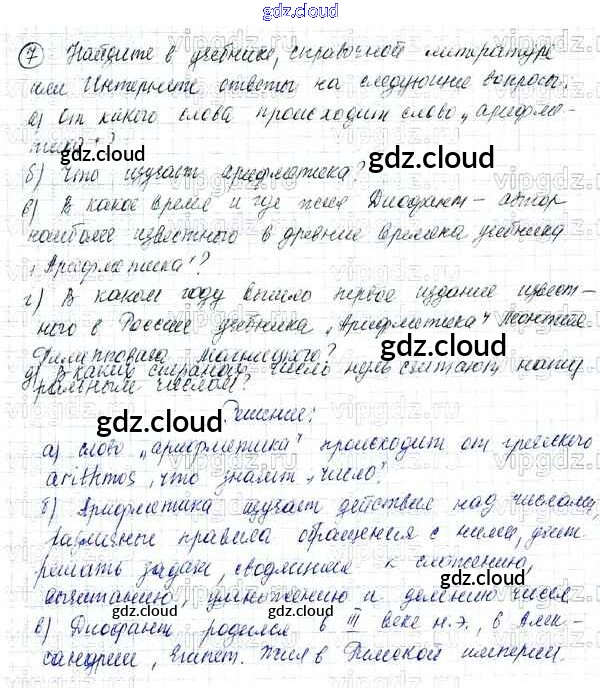 gdz.cloud
7 Найдите в учебнике, справочной литературе
или Интернете ответы на следующие вопросы.
а) От какого слова происходит слово „арифме-
тика"?
gdz.cloud
б) Что изучает арифметика?
в) В какое время и где жил Диофант – автор
наиболее известного в древние времена учебника
„Арифметика"?
г) В каком году вышло первое издание извест-
ного в России учебника „Арифметика" Леонтия
Филипповича Магницкого?
gdz.cloud
д) В каких странах число нуль считают нату
ральным числом?
gdz.cloud
Решение:
а) слово „арифметика" происходит от греческого
arithmos, что значит „число".
б) Арифметика изучает действия над числами,
различные правила обращения с ними, учит
решать задачи, сводящиеся к сложению,
gdz.cloud
вычитанию, умножению и делению чисел
gdz.cloud gdz.cloud
в) Диофант родился в III веке н.э., в Алек-
сандрии, Египет. Жил в Римской империи.